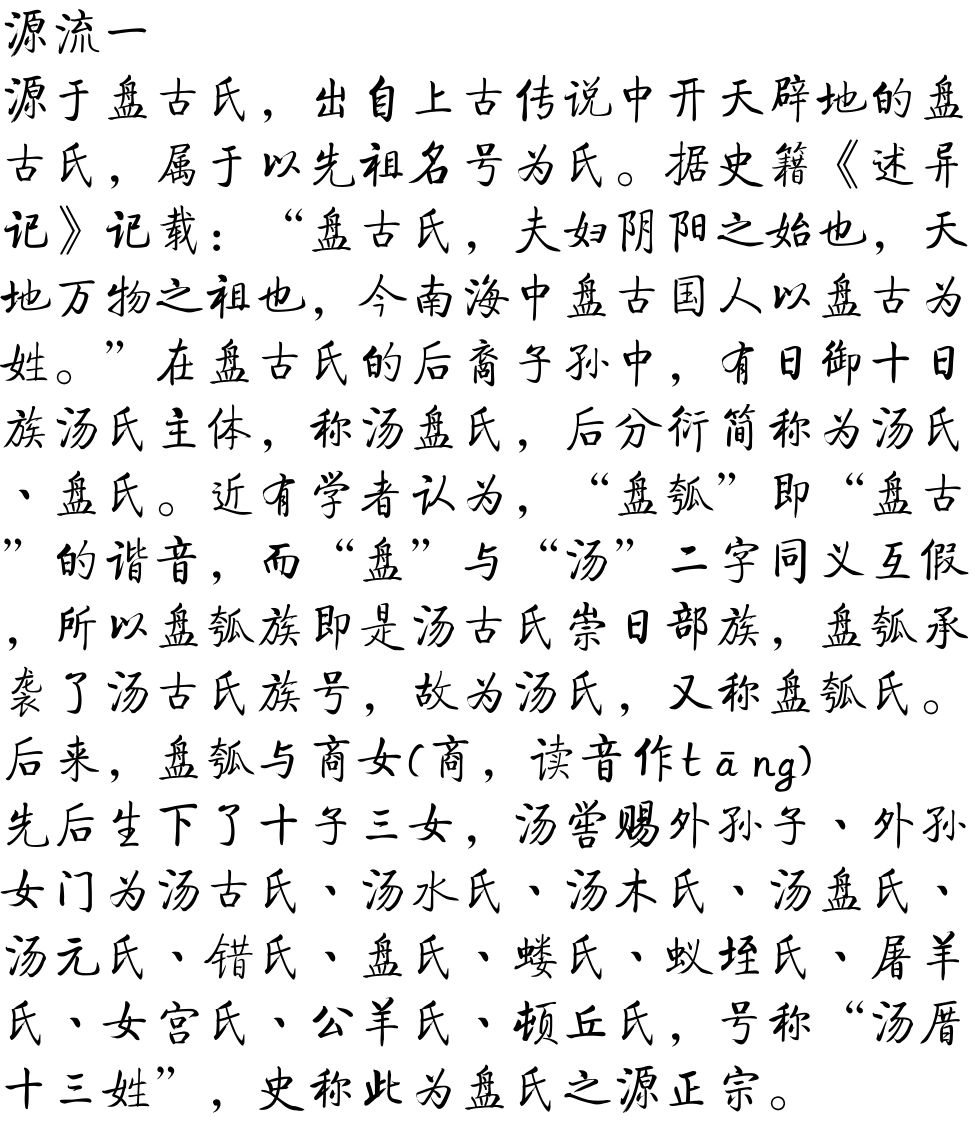 源流一
源于盘古氏，出自上古传说中开天辟地的盘
古氏，属于以先祖名号为氏。据史籍《述异
记》记载：“盘古氏，夫妇阴阳之始也，天
地万物之祖也，今南海中盘古国人以盘古为
姓。”在盘古氏的后裔子孙中，有日御十日
族汤氏主体，称汤盘氏，后分衍简称为汤氏
、盘氏。近有学者认为，“盘瓠”即“盘古
”的谐音，而“盘”与“汤”二字同义互假
，所以盘瓠族即是汤古氏崇日部族，盘瓠承
袭了汤古氏族号，故为汤氏，又称盘瓠氏。
后来，盘瓠与商女(商，读音作tāng)
先后生下了十子三女，汤喾赐外孙子、外孙
女门为汤古氏、汤水氏、汤木氏、汤盘氏、
汤元氏、错氏、盘氏、蝼氏、蚁垤氏、屠羊
氏、女宫氏、公羊氏、顿丘氏，号称“汤厝
十三姓”，史称此为盘氏之源正宗。